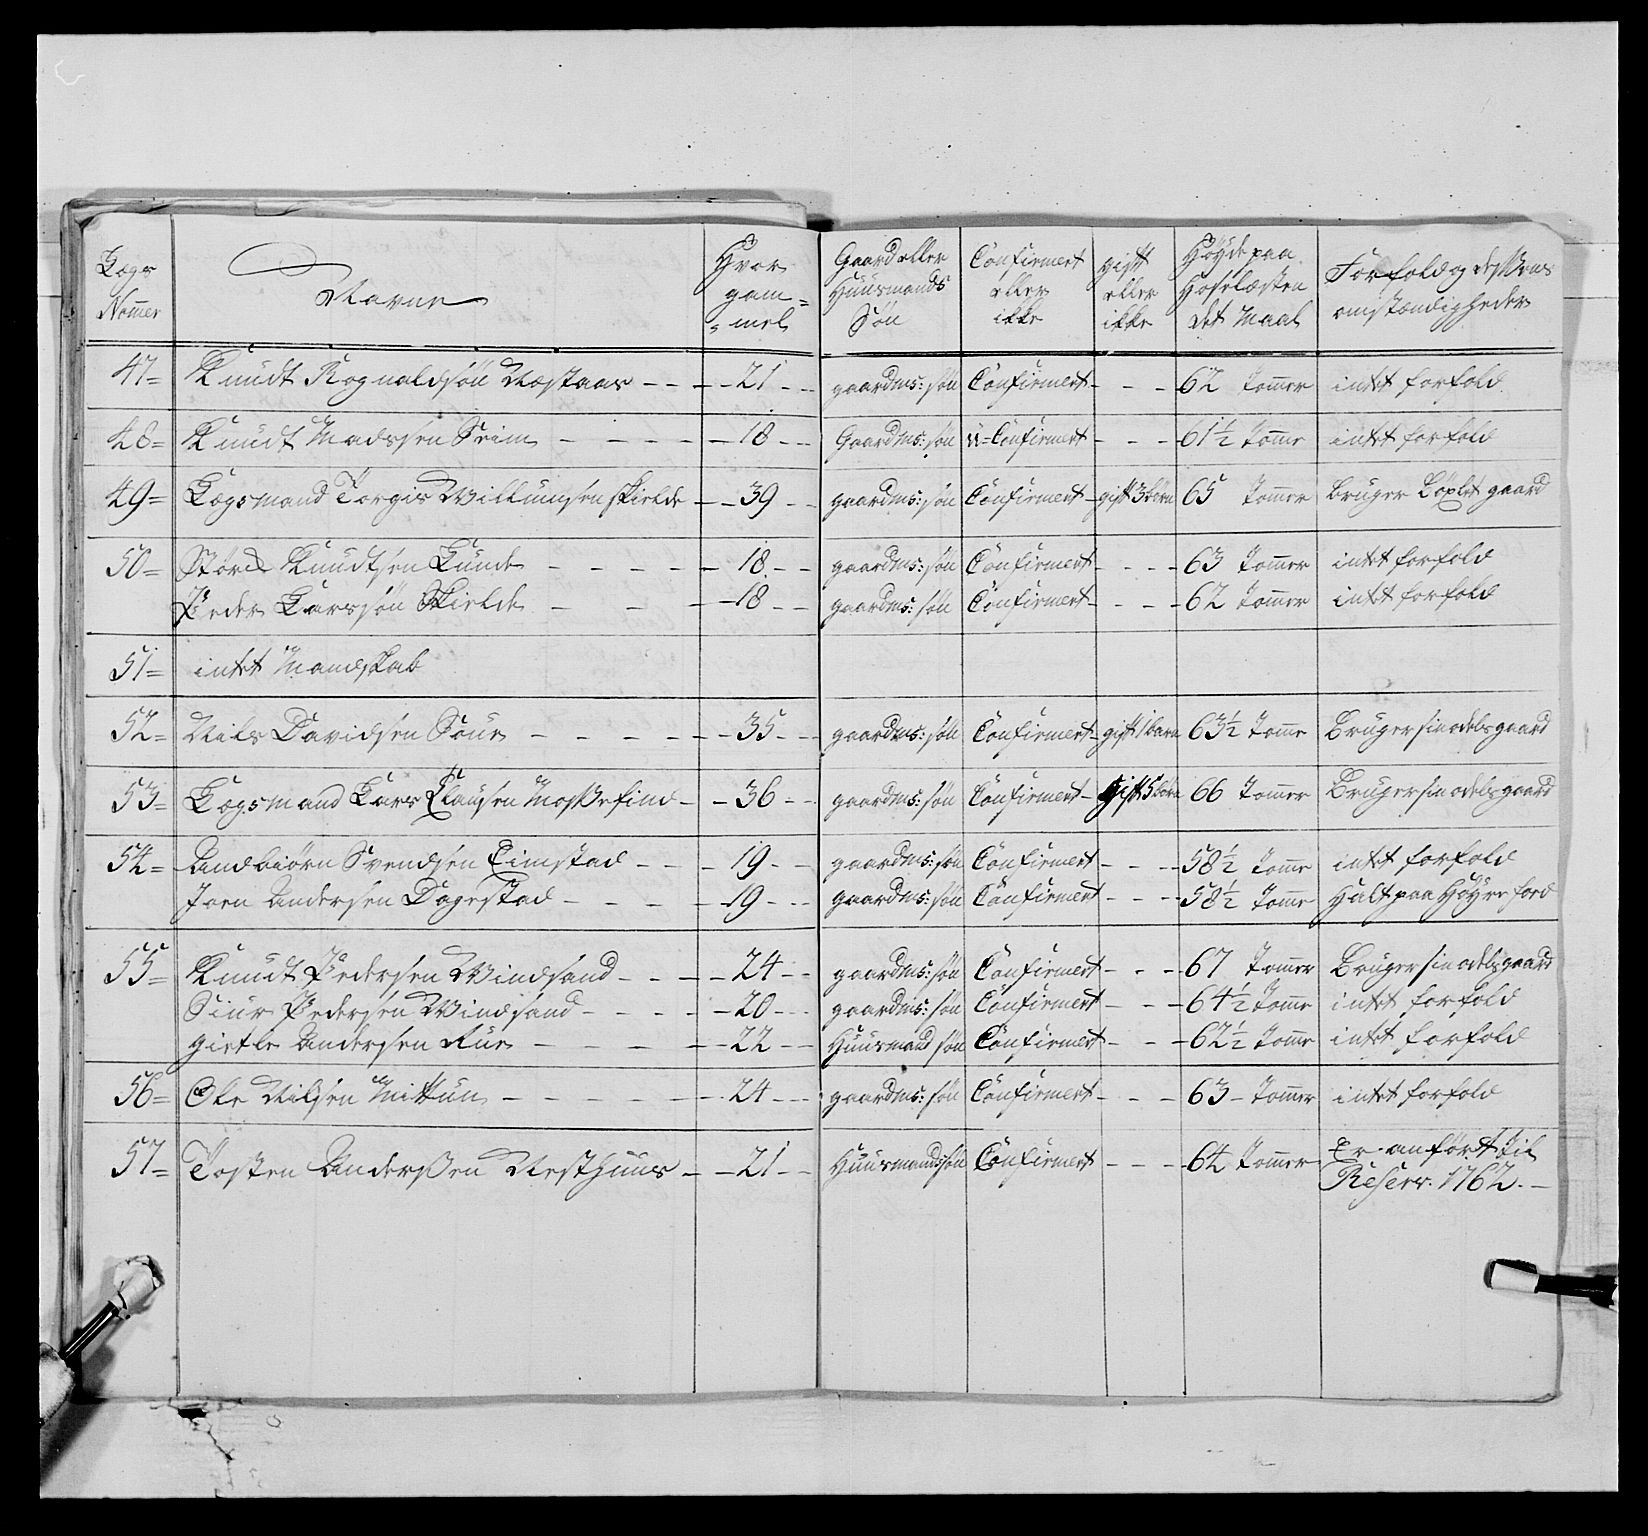 Lægs Nommer | Navne | Hvor gam=mel | Gaard eller Huusmands Søn | Confirmert eller ikke | gift eller ikke | Høyde paa Hoselæsten det Maal | Forfold og des Væns omstændigheder
47= Knudt Rognaldsøn Næstaas - - - 21 - - gaardms: søn Confirmert - - - 62 Tommer intet forfold
48= Knudt Madssen Seim - - - - - 18 - - Gaardms: søn u=Confirmert - - - 61½ Tomme intet forfold
49= Lægsmand Torgis Willumsen skielde - - 39 - - gaardms: søn Confirmert - gift 3 børn 65 Tommer bruger Böxlet gaard
50= Størk Knudtsen Lunde - - - - - 18 - - gaardms: søn Confirmert - - - 63 Tommer intet forfold
Peder Larssøn Skielde - - - - 18 - - gaardms: søn Confirmert - - - 62 Tommer intet forfold
51= intet Mandskab
52= Nils Davidsen Soue - - - - - 35 - - gaardms: søn Confirmert - gift 1 barn 63½ Tomme Bruger sin odels gaard
53= Lægsmand Lars Clausen Mossefind - - 36 - - gaardms: søn Confirmert - gift 5 børn 66 Tommer Bruger sin odels gaard
54= Andbiørn Svendsen Timstad - - - 19 - - gaardms: søn Confirmert - - - 58½ Tomme intet forfold
Joen Andersen Dagestad - - - - 19 - - gaardms: søn Confirmert - - - 58½ Tomme Halt paa Høyre food
55= Knudt Pedersen Windsand - - - - 24 - - gaardms: søn Confirmert - - - 67 Tommer Bruger sin odels gaard
Siur Pedersen Windsand - - - - 20 - - gaardms: søn Confirmert - - - 64½ Tomme intet forfold
Gietle Andersen Rue - - - - - 22 - - Huusmand søn Confirmert - - - 62½ Tomme intet forfold
56= Ole Nilsen Mittun - - - - - 24 - - gaardms: søn Confirmert - - - 63 - Tommer intet forfold
57= Tosten Anderssen Nesthuus - - 21 - - Huusmands søn Confirmert - - - 64 Tommer Er anført til
Reserv. 1762. -